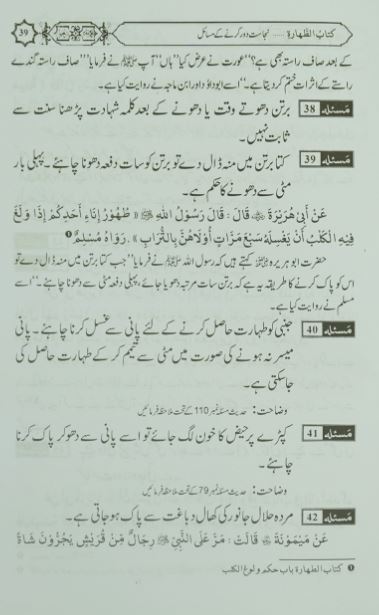 کتاب الطهارة ...... نجاست دور کرنے کے مسائل
39
کے بعد صاف راستہ بھی ہے؟‘‘ عورت نے عرض کیا ’’ہاں‘‘ آپ ﷺ نے فرمایا ’’صاف راستہ گندے
راستے کے اثرات ختم کر دیتا ہے۔‘‘ اسے ابوداؤد اور ابن ماجہ نے روایت کیا ہے۔
مَسئله 38 برتن دھوتے وقت یا دھونے کے بعد کلمہ شہادت پڑھنا سنت سے
ثابت نہیں۔
مَسئله 39 کتا برتن میں منہ ڈال دے تو برتن کو سات دفعہ دھونا چاہئے۔ پہلی بار
مٹی سے دھونے کا حکم ہے۔
عَنْ أَبِي هُرَيْرَةَ ﷺ قَالَ : قَالَ رَسُولُ اللهِ ﷺ (( طَهُورُ إِنَاءِ أَحَدِكُمْ إِذَا وَلَغَ
فِيهِ الْكَلْبُ أَنْ يَغْسِلَهُ سَبْعَ مَرَّاتٍ أُوْلَاهُنَّ بِالتُّرَابِ )) . رَوَاهُ مُسْلِمٌ ❶
حضرت ابو ہریرہ کہتے ہیں کہ رسول اللہ ﷺ نے فرمایا ’’جب کتا برتن میں منہ ڈال دے تو
اس کو پاک کرنے کا طریقہ یہ ہے کہ برتن سات مرتبہ دھویا جائے، پہلی دفعہ مٹی سے دھونا چاہئے۔‘‘ اسے
مسلم نے روایت کیا ہے۔
مَسئله 40 جنبی کو طہارت حاصل کرنے کے لئے پانی سے غسل کرنا چاہئے۔ پانی
میسر نہ ہونے کی صورت میں مٹی سے تیمم کر کے طہارت حاصل کی
جاسکتی ہے۔
وضاحت: حدیث مسئلہ نمبر 110 کے تحت ملاحظہ فرمائیں
مَسئله 41 کپڑے پر حیض کا خون لگ جائے تو اسے پانی سے دھو کر پاک کرنا
چاہئے۔
وضاحت: حدیث مسئلہ نمبر 79 کے تحت ملاحظہ فرمائیں
مَسئله 42 مردہ حلال جانور کی کھال دباغت سے پاک ہو جاتی ہے۔
عَنْ مَيْمُونَةَ قَالَتْ : مَرَّ عَلَى النَّبِيِّ ﷺ رِجَالٌ مِّنْ قُرَيْشٍ يَجُرُّونَ شَاةً
❶ كتاب الطهارة باب حكم ولوغ الكلب